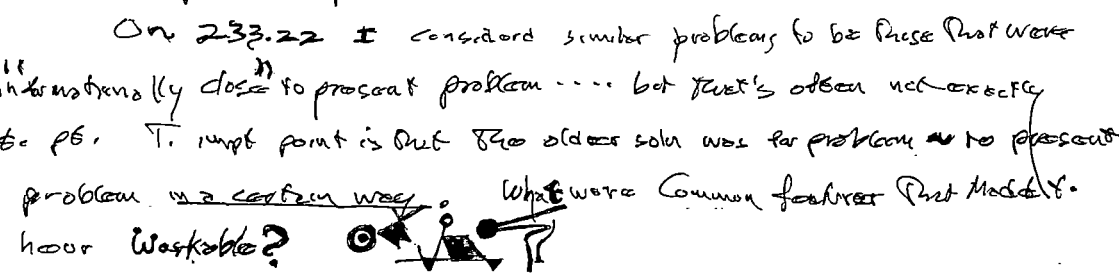 On 233.22 I considord similar problems to be those that were
"informationally close" to present problem .... but that's often not exactly
the pt. T. impt point is that the older soln was for problem ~ to present
problem in a certain way. What were common features that made t.
heur workable?